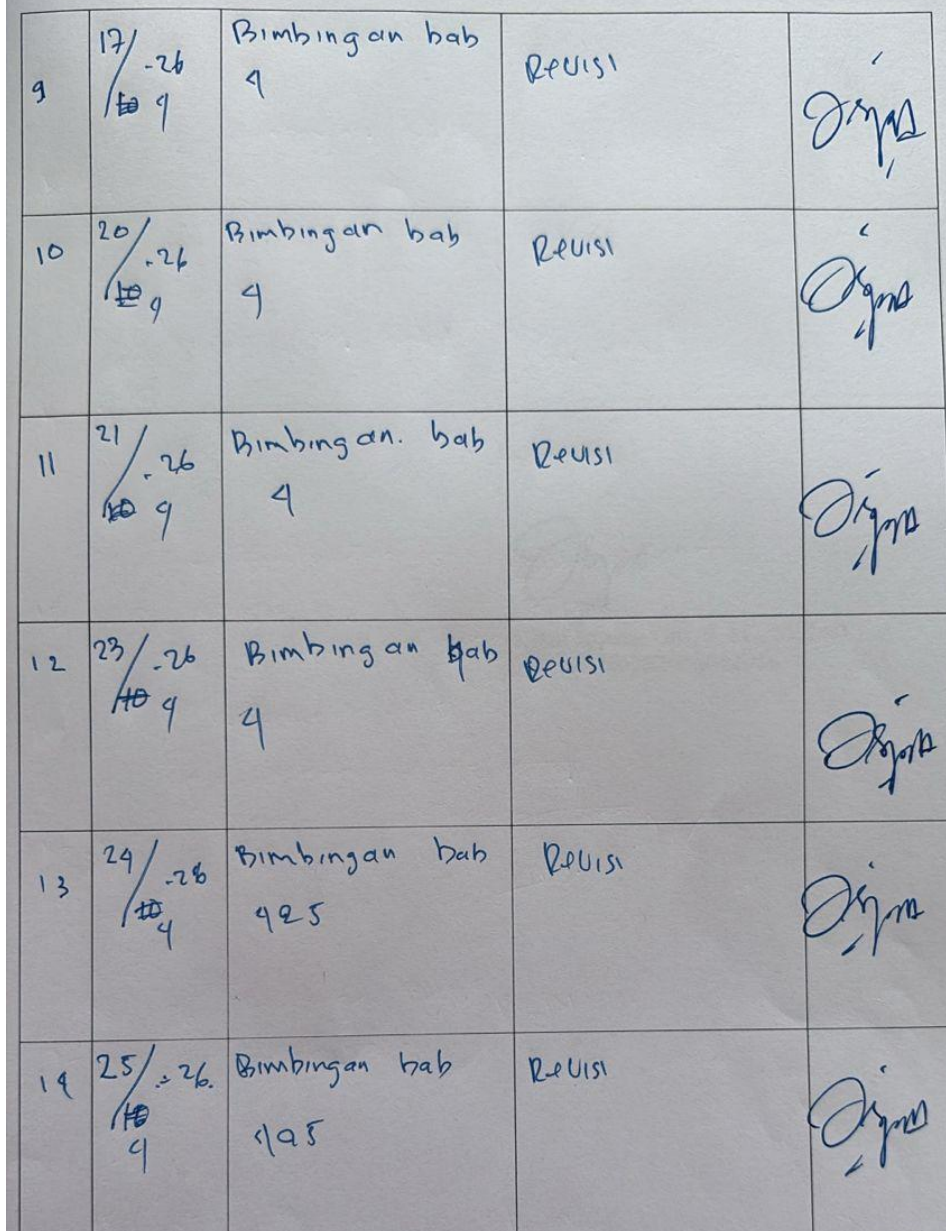 9 17/4-26 Bimbingan bab Revisi
4
10 20/4-26 Bimbingan bab Revisi
4
11 21/4-26 Bimbingan. bab Revisi
4
12 23/4-26 Bimbingan bab Revisi
4
13 24/4-26 Bimbingan bab Revisi
4&5
14 25/4-26. Bimbingan bab Revisi
4&5